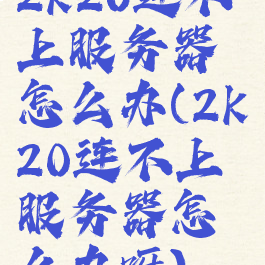 2k20连不
上服务器
怎么办(2k
20连不上
服务器怎
么办呀)